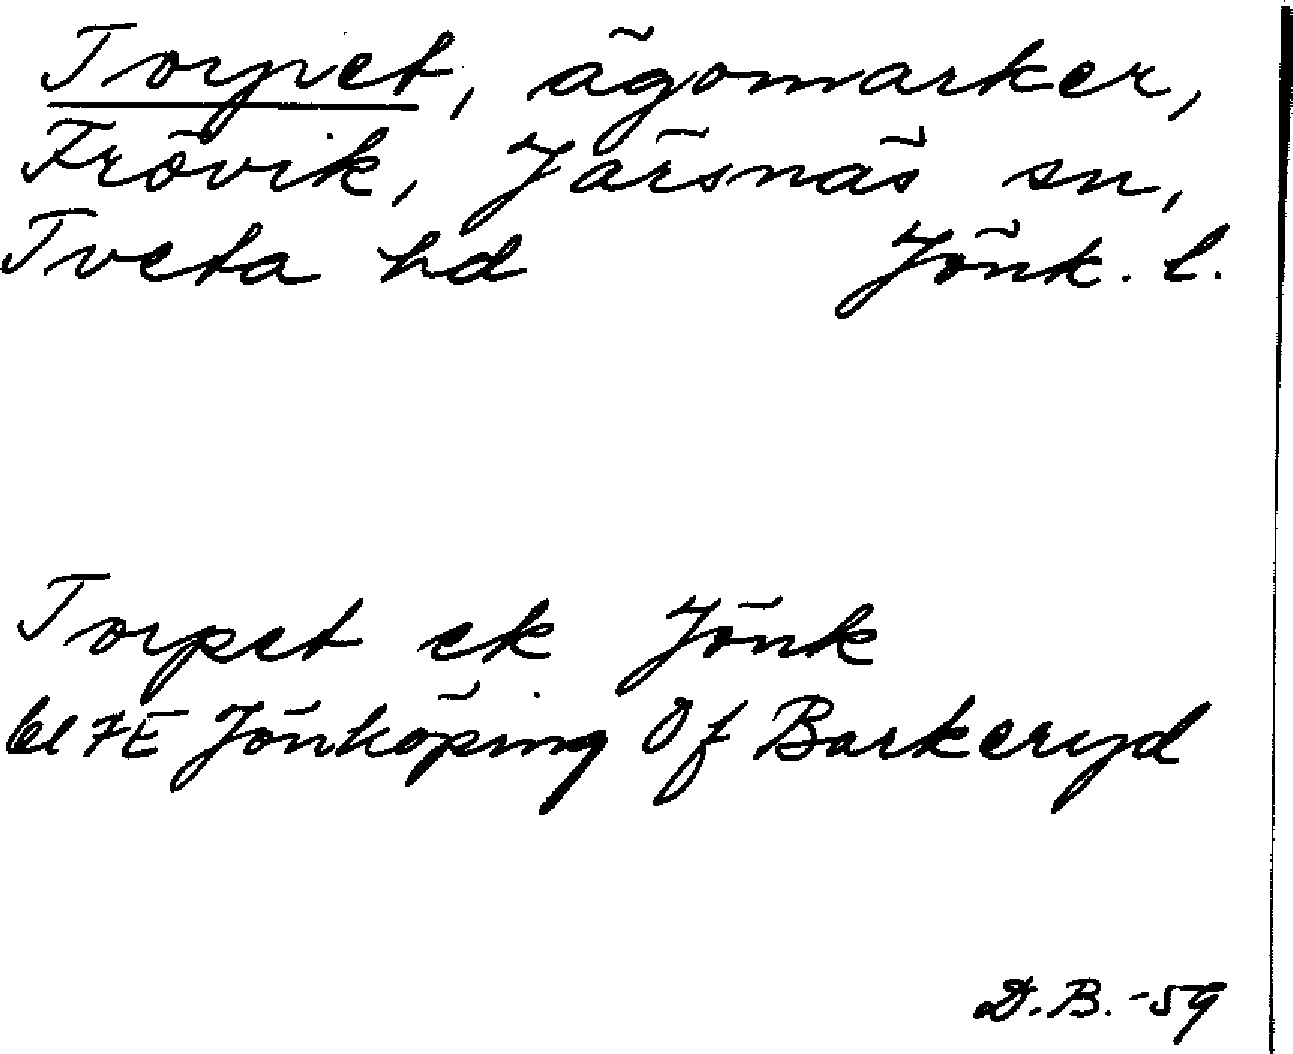 Torpet, ägomarker,
Frövik, Järsnäs sn,
Tveta hd Jönk. l.
Torpet ek Jönk
bl 7E Jönköping Of Barkeryd
D.B.-59